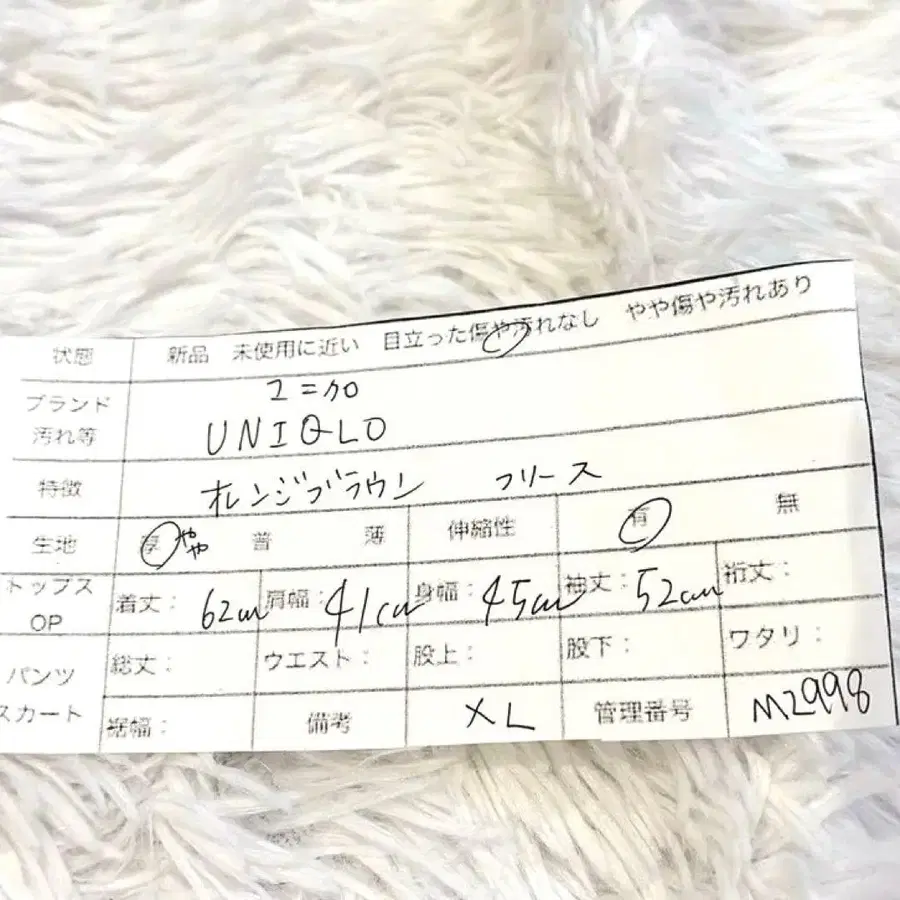 状態 新品 未使用に近い 目立った傷や汚れなし やや傷や汚れあり
ブランド ユニクロ
汚れ等 UNIQLO
特徴 オレンジブラウン フリース
生地 厚 やや 普 薄 伸縮性 有 無
トップス 着丈: 62cm 肩幅: 41cm 身幅: 45cm 袖丈: 52cm 裄丈:
OP
総丈: ウエスト: 股上: 股下: ワタリ:
パンツ
スカート 裾幅: 備考 XL 管理番号 M2998